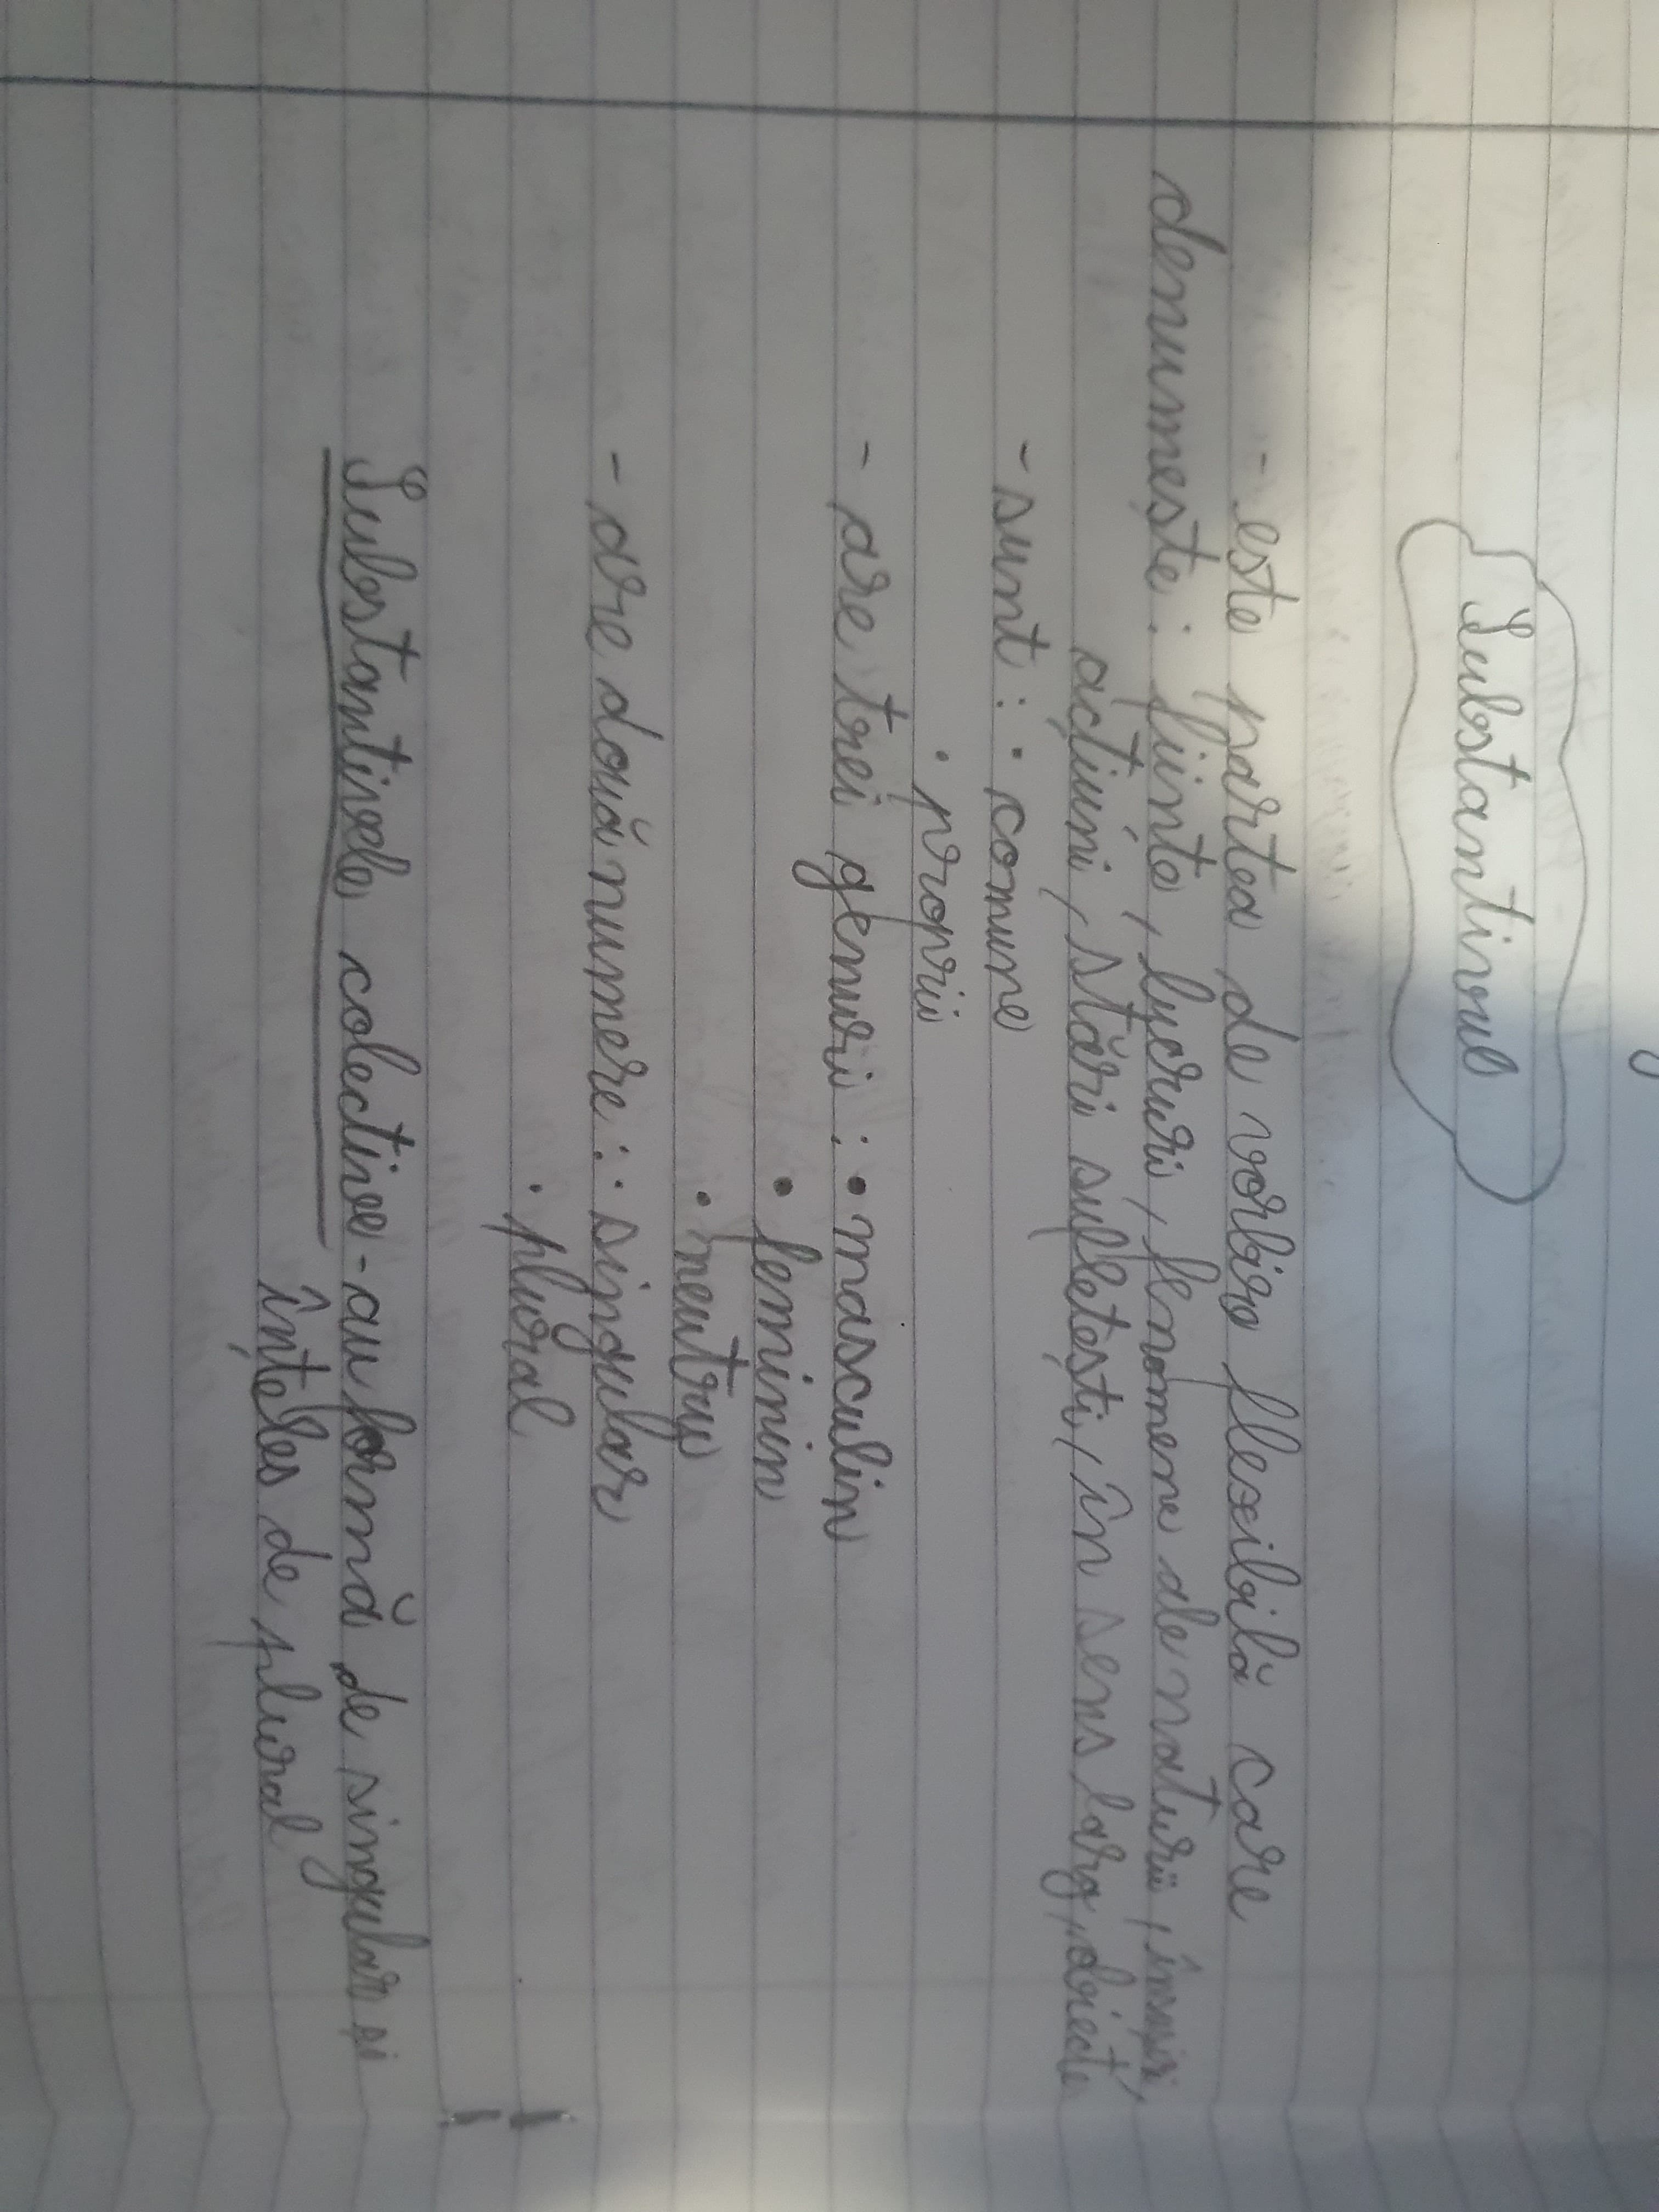 Substantivul
- este partea de vorbire flexibilă care
denumește: ființe, lucruri, fenomene ale naturii, însușiri,
acțiuni, stări sufletești, în sens larg, obiecte
- sunt: • comune
• proprii
- are trei genuri: • masculin
• feminin
• neutru
- are două numere: • singular
• plural
Substantivele colective - au formă de singular și
înțeles de plural